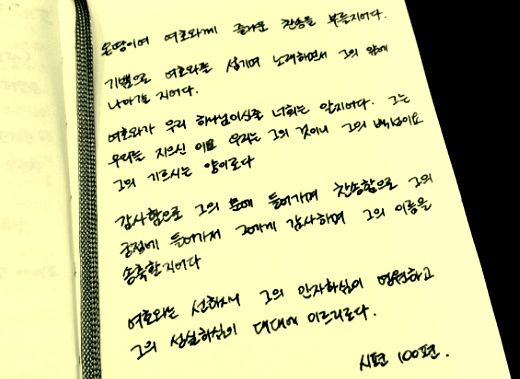 온땅이여 여호와께 즐거운 찬송을 부를지어다.
기쁨으로 여호와를 섬기며 노래하면서 그의 앞에
나아갈 지어다.
여호와가 우리 하나님이신줄 너희는 알지어다. 그는
우리를 지으신 이요 우리는 그의 것이니 그의 백성이요
그의 기르시는 양이로다
감사함으로 그의 문에 들어가며 찬송함으로 그의
궁정에 들어가서 그에게 감사하며 그의 이름을
송축할지어다
여호와는 선하시니 그의 인자하심이 영원하고
그의 성실하심이 대대에 이르리로다.
시편 100편.